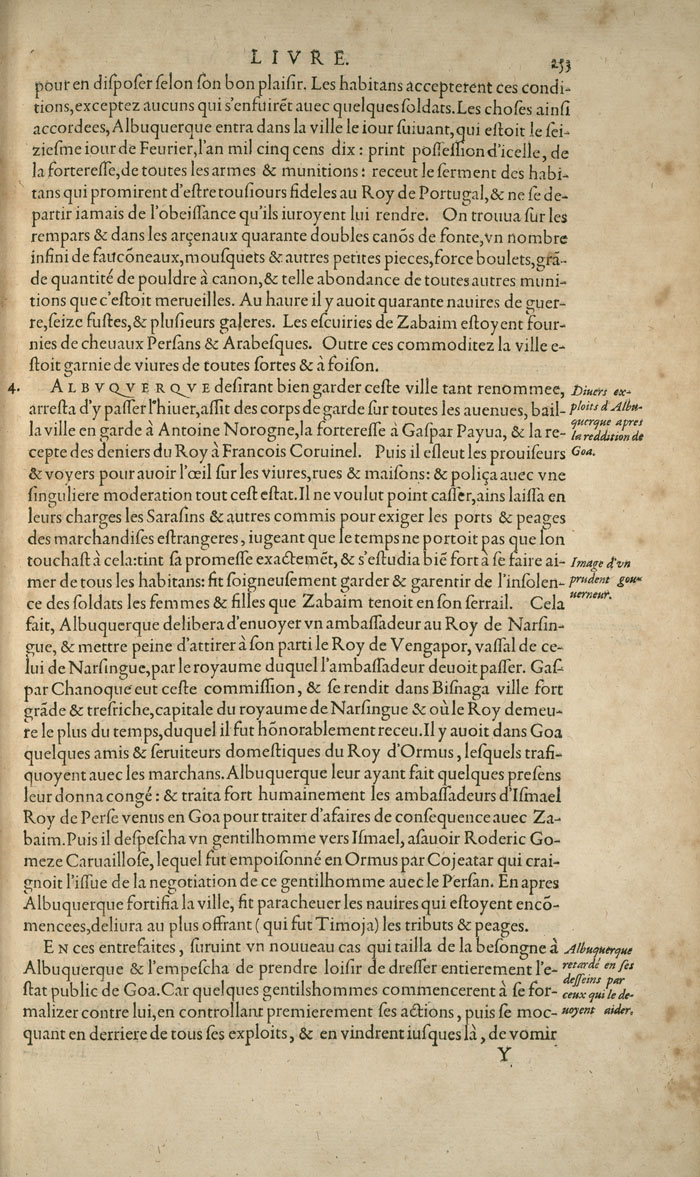 LIVRE.
253
pour en diſpoſer ſelon ſon bon plaiſir. Les habitans accepterent ces condi-
tions, exceptez aucuns qui s'enfuirẽt auec quelques ſoldats. Les choſes ainſi
accordees, Albuquerque entra dans la ville le iour ſuiuant, qui eſtoit le ſei-
zieſme iour de Feurier, l'an mil cinq cens dix : print poſſeſſion d'icelle, de
la fortereſſe, de toutes les armes & munitions : receut le ſerment des habi-
tans qui promirent d'eſtre touſiours fideles au Roy de Portugal, & ne ſe de-
partir iamais de l'obeiſſance qu'ils iuroyent lui rendre. On trouua ſur les
rempars & dans les arçenaux quarante doubles canõs de fonte, vn nombre
infini de faucõneaux, mouſquets & autres petites pieces, force boulets, grã-
de quantité de pouldre à canon, & telle abondance de toutes autres muni-
tions que c'eſtoit merueilles. Au haure il y auoit quarante nauires de guer-
re, ſeize fuſtes, & pluſieurs galeres. Les eſcuiries de Zabaim eſtoyent four-
nies de cheuaux Perſans & Arabeſques. Outre ces commoditez la ville e-
ſtoit garnie de viures de toutes ſortes & à foiſon.
4. ALBVQVERQVE deſirant bien garder ceſte ville tant renommee,
arreſta d'y paſſer l'hiuer, aſſit des corps de garde ſur toutes les auenues, bail-
la ville en garde à Antoine Norogne, la fortereſſe à Gaſpar Payua, & la re-
cepte des deniers du Roy à Francois Coruinel. Puis il eſleut les prouiſeurs
& voyers pour auoir l'œil ſur les viures, rues & maiſons : & poliça auec vne
ſinguliere moderation tout ceſt eſtat. Il ne voulut point caſſer, ains laiſſa en
leurs charges les Saraſins & autres commis pour exiger les ports & peages
des marchandiſes eſtrangeres, iugeant que le temps ne portoit pas que l'on
touchaſt à cela: tint ſa promeſſe exactemẽt, & s'eſtudia biẽ fort à ſe faire ai-
mer de tous les habitans: fit ſoigneuſement garder & garentir de l'inſolen-
ce des ſoldats les femmes & filles que Zabaim tenoit en ſon ſerrail. Cela
fait, Albuquerque delibera d'enuoyer vn ambaſſadeur au Roy de Narſin-
gue, & mettre peine d'attirer à ſon parti le Roy de Vengapor, vaſſal de ce-
lui de Narſingue, par le royaume duquel l'ambaſſadeur deuoit paſſer. Gaſ-
par Chanoque eut ceſte commiſſion, & ſe rendit dans Biſnaga ville fort
grãde & treſriche, capitale du royaume de Narſingue & où le Roy demeu-
re le plus du temps, duquel il fut hõnorablement receu. Il y auoit dans Goa
quelques amis & ſeruiteurs domeſtiques du Roy d'Ormus, leſquels trafi-
quoyent auec les marchans. Albuquerque leur ayant fait quelques preſens
leur donna congé : & traita fort humainement les ambaſſadeurs d'Iſmael
Roy de Perſe venus en Goa pour traiter d'afaires de conſequence auec Za-
baim. Puis il deſpeſcha vn gentilhomme vers Iſmael, aſauoir Roderic Go-
meze Caruailloſe, lequel fut empoiſonné en Ormus par Cojeatar qui crai-
gnoit l'iſſue de la negotiation de ce gentilhomme auec le Perſan. En apres
Albuquerque fortifia la ville, fit paracheuer les nauires qui eſtoyent encõ-
mencees, deliura au plus offrant ( qui fut Timoja) les tributs & peages.
EN ces entrefaites, ſuruint vn nouueau cas qui tailla de la beſongne à
Albuquerque & l'empeſcha de prendre loiſir de dreſſer entierement l'e-
ſtat public de Goa. Car quelques gentilshommes commencerent à ſe for-
malizer contre lui, en controllant premierement ſes actions, puis ſe moc-
quant en derriere de tous ſes exploits, & en vindrent iuſques là, de vomir
Y
Diuers ex-
ploits d'Albu-
querque apres
la reddition de
Goa.
Image d'vn
prudent gou-
uerneur.
Albuquerque
retardé en ſes
deſſeins par
ceux qui le de-
uoyent aider.